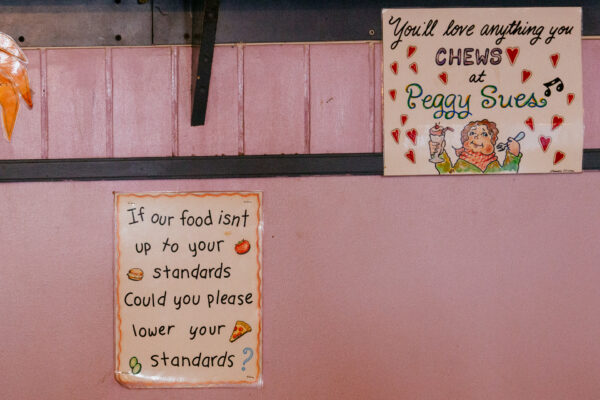 You'll love anything you
CHEWS
at
Peggy Sues
If our food isnt
up to your
standards
Could you please
lower your
standards ?